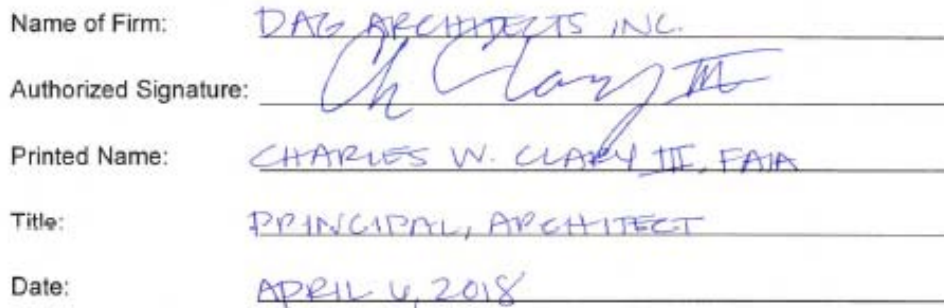 Name of Firm: DAG ARCHITECTS INC.
Authorized Signature: Ch Clary III
Printed Name: CHARLES W. CLARY III, FAIA
Title: PRINCIPAL, ARCHITECT
Date: APRIL 6, 2018